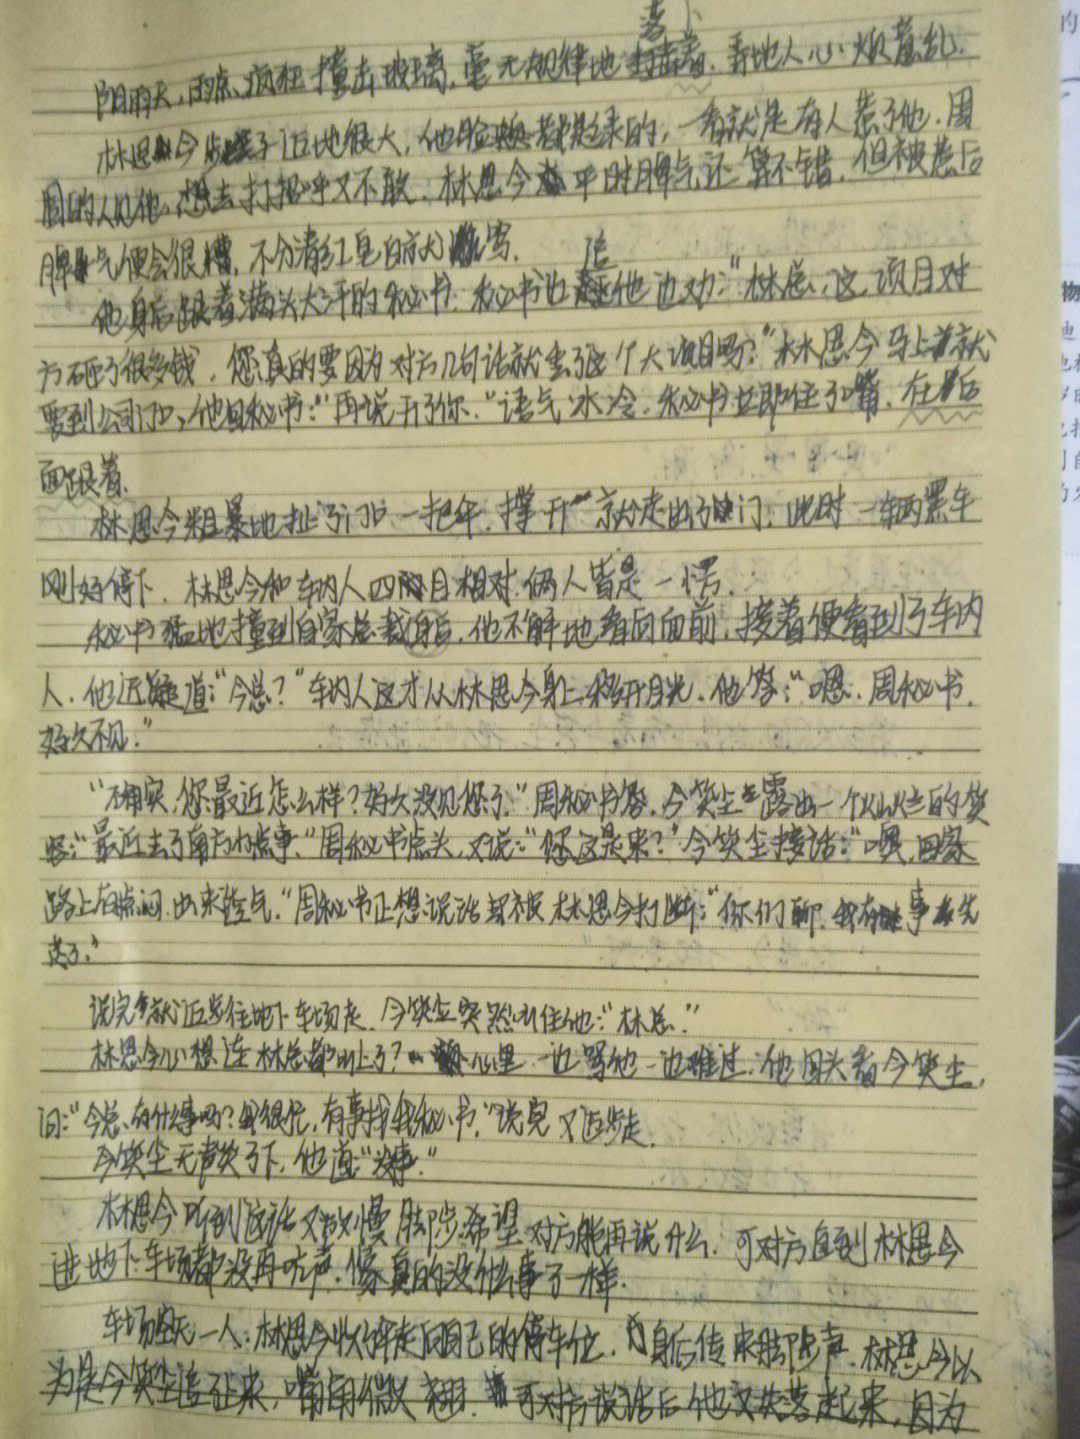 落下
阴雨天，雨点疯狂撞击玻璃，毫无规律地击着，弄地人心烦意乱．
林思今步子迈地很大，他脸是的，一看就是有人惹了他．周
围的人见他，想去打招呼又不敢．林思今平时脾气还算不错，但被惹后
脾气便会很糟，不分清红皂白就骂．
他身后跟着满头大汗的秘书．秘书边追他边劝：“林总，这项目对
方砸了很多钱，您真的要因为对方几句话就丢了这个大项目吗？”林思今马上就
要到公司门口，他回秘书：“再说开了你．”语气冰冷．秘书立即住了嘴，在后
面跟着．
林思今粗暴地扯了门口一把伞，撑开就走出了门．此时一辆黑车
刚好停下．林思今和车内人四目相对．俩人皆是一愣．
秘书猛地撞到自家总裁身后，他不解地看向面前，接着便看到了车内
人．他迟疑道：“今总？”车内人这才从林思今身上移开目光．他答：“嗯．周秘书．
好久不见．”
“不确实，您最近怎么样？好久没见您了．”周秘书答．今笑尘露出一个灿烂的笑
容：“最近去了南方办点事．”周秘书点头，又说：“您这是来？”今笑尘接话：“噢，回家
路上有点闷．出来透气．”周秘书正想说话却被林思今打断：“你们聊．我有事先
走了．”
说完就迈步往地下车场走．今笑尘突然叫住他：“林总．”
林思今心想连林总都叫上了？心里一边骂他一边难过．他回头看今笑尘，
问：“今总，有什么事吗？我很忙，有事找我秘书．”说完又迈步走．
今笑尘无声笑了下，他道“没事．”
林思今听到这话又放慢脚步希望对方能再说什么．可对方直到林思今
进地下车场都没再吭声．像真的没什么事了一样．
车场空无一人．林思今收伞走向自己的停车位．身后传来脚步声．林思今以
为是今笑尘追过来，嘴角微翘．可对方说话后他又失落起来，因为